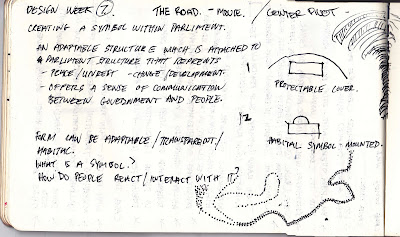 DESIGN WEEK 7 THE ROAD. - MOVIE. / CENTER PIVOT -
CREATING A SYMBOL WITHIN PARLIMENT.
AN ADAPTABLE STRUCTURE WHICH IS ATTACHED TO
A PARLIMENT STRUCTURE THAT REPRESENTS
- PEACE/UNREST - CHANGE/DEVELOPMENT.
- OFFERS A SENSE OF COMMUNICATION
BETWEEN GOVERNMENT AND PEOPLE.
1
PROTECTABLE COVER.
2
FORM CAN BE ADAPTABLE/TRANSPARENT/
HABITAL.
HABITAL SYMBOL - MOUNTED.
WHAT IS A SYMBOL?
HOW DO PEOPLE REACT/INTERACT WITH IT?